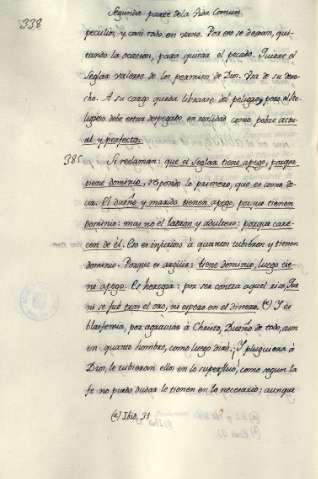 338
Segunda parte de la Vida Comun
peculio, y casi todo, en venta. Por eso se desean, qui-
tando la ocasion, para quitar el pecado. Puede el
seglar valerse de los permisos de Dios. Usa de su dere-
cho. A su cargo queda librarse del peligro; pero el Re-
ligioso debe estar despegado en realidad como pobre actu-
al y perfecto.
385 Si reclaman: que el seglar tiene apego, porque
tiene dominio, respondo lo primero, que es como de-
va. El dueño y marido tienen apego, porque tienen
dominio: mas no el ladron y adultero: porque care-
cen de él. Es injurioso à quantos tubieron y tienen
dominio. Porque es arguir: tiene dominio, luego tie-
ne apego. Es heregia: por ser contra aquel rico, que
ni se fué tras el oro, ni esperó en el dinero. (*) Y es
blasfemia, por agraviar à Christo, Dueño de todo, aun
en quanto hombre, como luego diré. Y pluguiera à
Dios, le tubieran ellos en lo superfluo, como segun la
fe no puedo dudar le tienen en lo necesario: aunque
(*) Ibid. 31